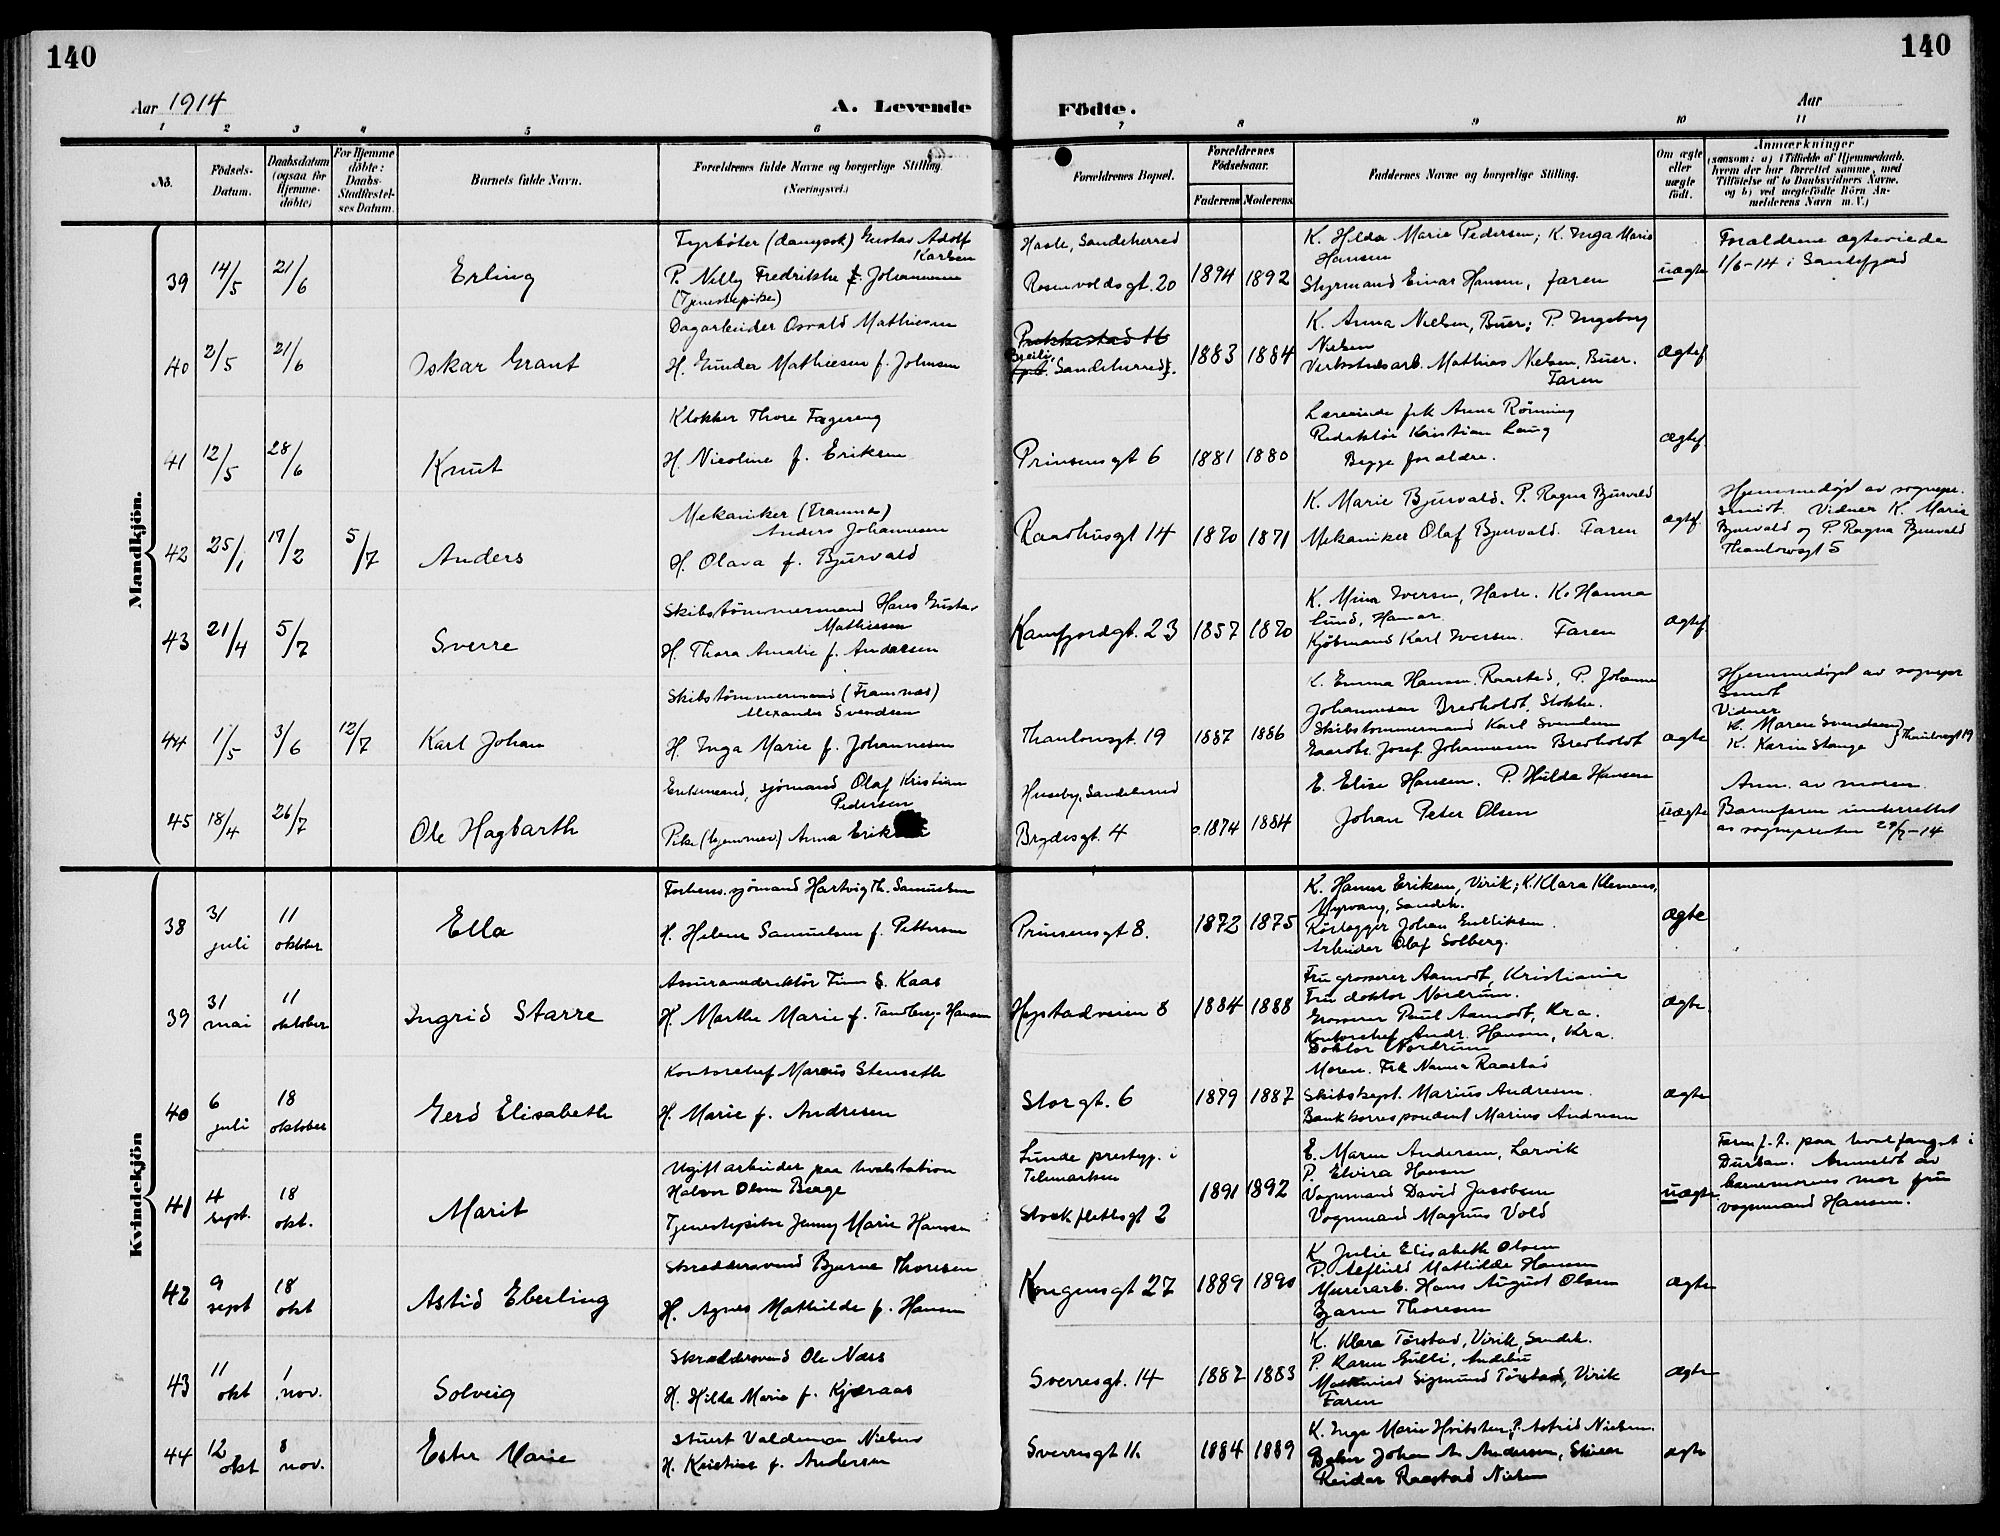 140
140
Aar 1914
A. Levende
Födte.
Aar
1 2 3 4 5 6 7 8 9 10 11
No.
Födsels-Datum.
Daabsdatum (ogsaa för Hjemme-döbte)
For Hjemme döbte: Daabs-Stadfæstel-ses Datum.
Barnets fulde Navn.
Forældrenes fulde Navne og borgerlige Stilling.
(Næringsvei.)
Forældrenes Bopæl.
Forældrenes Födselsaar.
Faderens
Moderens
Faddernes Navne og borgerlige Stilling.
Om ægte eller uægte födt.
Anmærkninger
(saasom: a) i Tilfælde af Hjemmedaab, hvem der har forrettet samme, med Tilföielse af to Daabsvidners Navne, og b) ved uægtefödte Börn An-melderens Navn m. V.)
Mandkjön.
39 14/5 21/6 Erling
Fyrbøter (dampsk) Gustav Adolf Karlsen
P. Nelly Fredrikke f. Johannesen
(Tjenestepike)
Hasle, Sandeherred
Rosenvoldsgt. 20
1894 1892
K. Hilda Marie Pedersen; K. Inga Marie Hansen
Styrmand Einar Hansen, faren
uægte
Forældrene ægteviede
1/6-14 i Sandefjord
40 2/5 21/6 Oskar Grant
Dagarbeider Osvald Mathiesen
H. Gunda Mathiesen f. Johnsen
Breili, Sandeherred
1883 1884
K. Anna Nielsen, Buer; P. Ingeborg Nielsen
Verkstedsarb. Mathias Nielsen, Buer.
Faren
ægtef
41 12/5 28/6 Knut
Klokker Thore Fagerang
H. Nicoline f. Eriksen
Prinsensgt 6
1881 1880
Lærerinde frk Anna Rönning
Redaktör Kristian Laug
Begge forældre.
ægtef
42 25/1 17/2 5/7 Anders
Mekaniker (Framnæs)
Anders Johannesen
H. Olava f. Bjurvald
Raadhusgt 14
1870 1871
K. Marie Bjurvald. P. Ragna Bjurvald
Mekaniker Olaf Bjurvald. Faren
ægtef
Hjemmedøpt av sognepr.
Smidt. Vidner K. Marie
Bjurvald og P. Ragna Bjurvald
Thaulowsgt 5
43 21/4 5/7 Sverre
Skibstömmermand Hans Gustav
Mathiesen
H. Thora Amalie f. Andersen
Kamfjordgt. 23
1857 1870
K. Mina Iversen, Hasle. K. Hanna
Lund, Hamar.
Kjöbmand Karl Iversen. Faren
ægtef
44 1/5 3/6 12/7 Karl Johan
Skibstömmermand (Framnæs)
Alexander Svendsen
H. Inga Marie f. Johannesen
Thaulowsgt. 19
1887 1886
K. Emma Hansen, Raastad, P. Johanne
Johannesen Bredholdt, Stokke.
Skibstömmermand Karl Svendsen
Gaardbr. Josef Johannesen Bredholdt
ægte
Hjemmedøpt av sognepr
Smidt
Vidner
K. Maren Svendsen
K. Karin Stange } Thaulowsgt 19
45 18/4 26/7 Ole Hagbarth
Enkemand, sjømand Olaf Kristian
Pedersen
Pike (hjemmev) Anna
Huseby, Sandeherred
Brydesgt. 4
1874 1884
E. Elise Hansen. P. Hilda Hansen
Johan Peter Olsen
uægte
Anm. av moren.
Barnefaren underrettet
av sognepresten 29/7-14
Kvindekjön
38 31 juli 11 oktober Ella
sjömand Hartvig Th. Samuelsen
H. Helene Samuelsen f. Pettersen
Prinsensgt 8.
1872 1875
K. Hanna Eriksen, Virik; K. Klara Klemens,
Myrvang, Sandeh.
Rörlegger Johan Endriksen.
Arbeider Olaf Solberg.
ægte
39 31 mai 11 oktober Ingrid Starre
Assurancedirektör Finn S. Kaas
H. Marthe Marie f. Tandberg-Hansen
Hystadveien 8
1884 1888
Fru grosserer Aamodt, Kristiania
Fru doktor Nordrum.
Grosserer Paul Aamodt, Kra.
Kontorchef Andr. Hansen, Kra.
Doktor Nordrum
ægte
40 6 juli 18 oktober Gerd Elisabeth
Kontorchef Marcus Stenseth
H. Marie f. Andresen
Storgt. 6
1879 1887
Moren. Frk Nanna Raastad
Skibskapt. Marius Andresen.
Bankkorrespondent Marius Andresen
ægte
41 4 sept. 18 okt. Marit
Ugift arbeider paa hvalstation
Halvor Olsen Berge
Tjenestepike Jenny Marie Hansen
Lunde prestegj. i
Telemarken
Stockflethsgt 2
1891 1892
E. Maren Andersen, Larvik
P. Elvira Hansen
Vognmand David Jacobsen
Vognmand Magnus Vold
uægte
Faren f. t. paa hvalfangst i
Durban. Anmeldt av
barnemorens mor fru
vognmand Hansen.
42 9 sept 18 okt Astid Eberling
Skræddersvend Bjarne Thoresen
H. Agnes Mathilde f. Hansen
Kongensgt 27
1889 1890
K. Julie Elisabeth Olsen
P. Alfhild Mathilde Hansen
Murerarb. Hans August Olsen
Bjarne Thoresen
ægte
43 11 okt 1 nov. Solveig
Skræddersvend Ole Næss
H. Hilda Marie f. Kjæraas
Sverresgt. 14
1882 1883
K. Klara Törstad, Virik, Sandeh.
P. Karen Gulli, Andebu
Sigmund Törstad, Virik
Faren
ægte
44 12 okt 8 nov. Ester Marie
Stuert Valdemar Nielsen
H. Kristine f. Andersen
Sverresgt 11.
1884 1889
K. Inga Marie Hvitsten, P. Astrid Nielsen.
Baker Johan A. Andersen, Skien
Reidar Raastad Nielsen
ægte